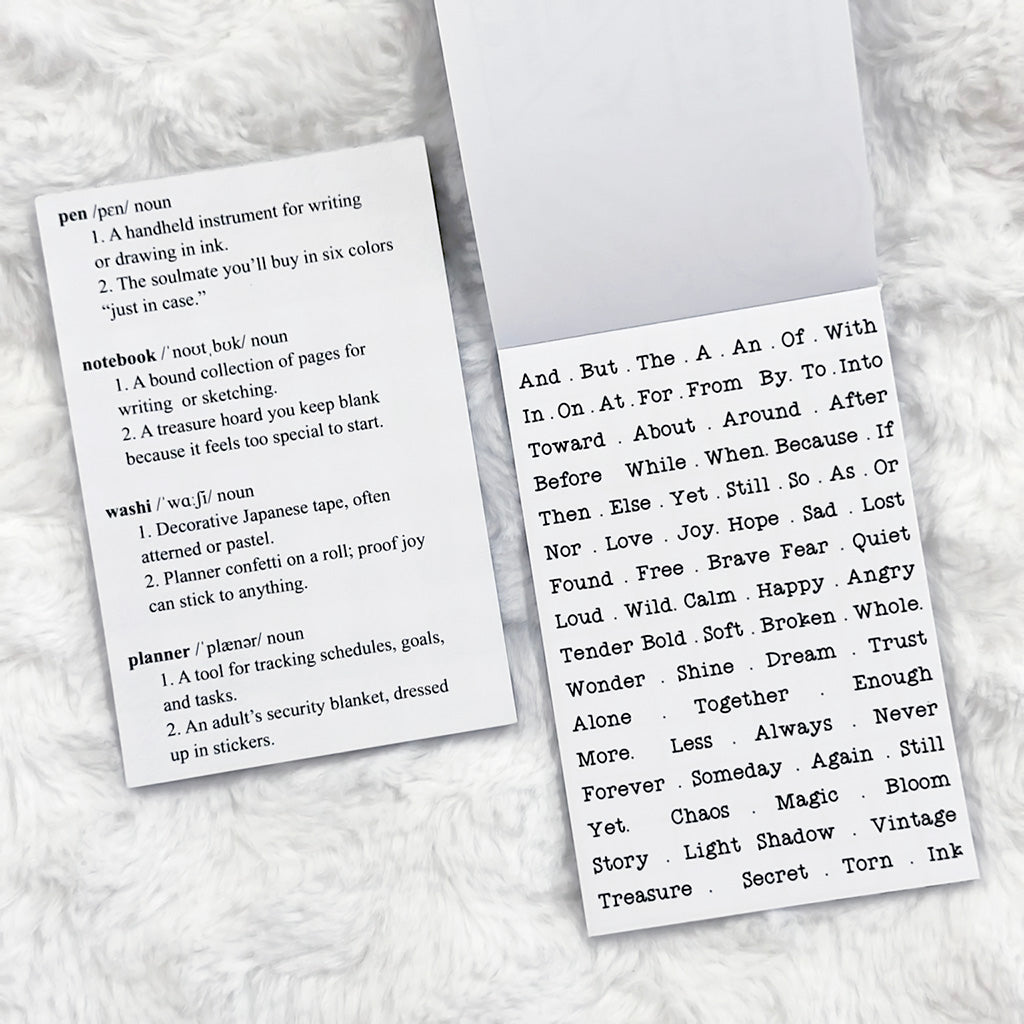 pen /pɛn/ noun
1. A handheld instrument for writing
or drawing in ink.
2. The soulmate you’ll buy in six colors
“just in case.”
notebook /ˈnoʊtˌbʊk/ noun
1. A bound collection of pages for
writing or sketching.
2. A treasure hoard you keep blank
because it feels too special to start.
washi /ˈwɑːʃi/ noun
1. Decorative Japanese tape, often
atterned or pastel.
2. Planner confetti on a roll; proof joy
can stick to anything.
planner /ˈplænər/ noun
1. A tool for tracking schedules, goals,
and tasks.
2. An adult’s security blanket, dressed
up in stickers.
And . But . The . A . An . Of . With
In . On . At . For . From By. To . Into
Toward . About . Around . After
Before While . When. Because . If
Then . Else . Yet . Still . So . As . Or
Nor . Love . Joy. Hope . Sad . Lost
Found . Free . Brave Fear . Quiet
Loud . Wild. Calm . Happy . Angry
Tender Bold . Soft . Broken . Whole.
Wonder . Shine . Dream . Trust
Alone . Together . Enough
More. Less . Always . Never
Forever . Someday . Again . Still
Yet. Chaos . Magic . Bloom
Story . Light Shadow . Vintage
Treasure . Secret . Torn . Ink